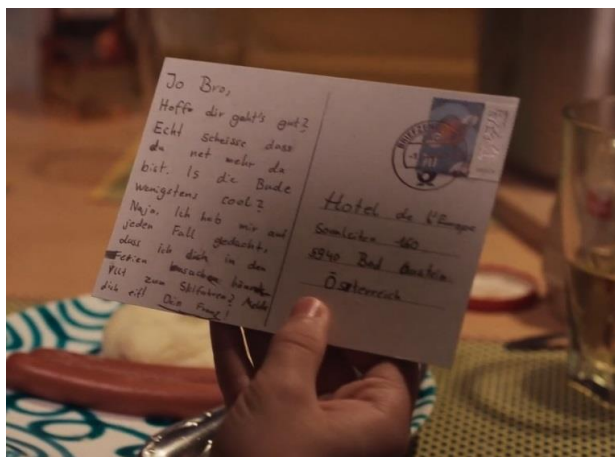 Jo Bro,
Hoffe dir geht's gut?
Echt scheisse dass
du net mehr da
bist. Is die Bude
wenigstens cool?
Naja, Ich hab mir auf
jeden Fall gedacht,
dass ich dich in den
Ferien besuchen
Vllt zum Skifahren? Melde
dich mit!
Dein Franz!
Hotel de l'Europe
Sonnleiten 160
5940 Bad Gastein
Österreich